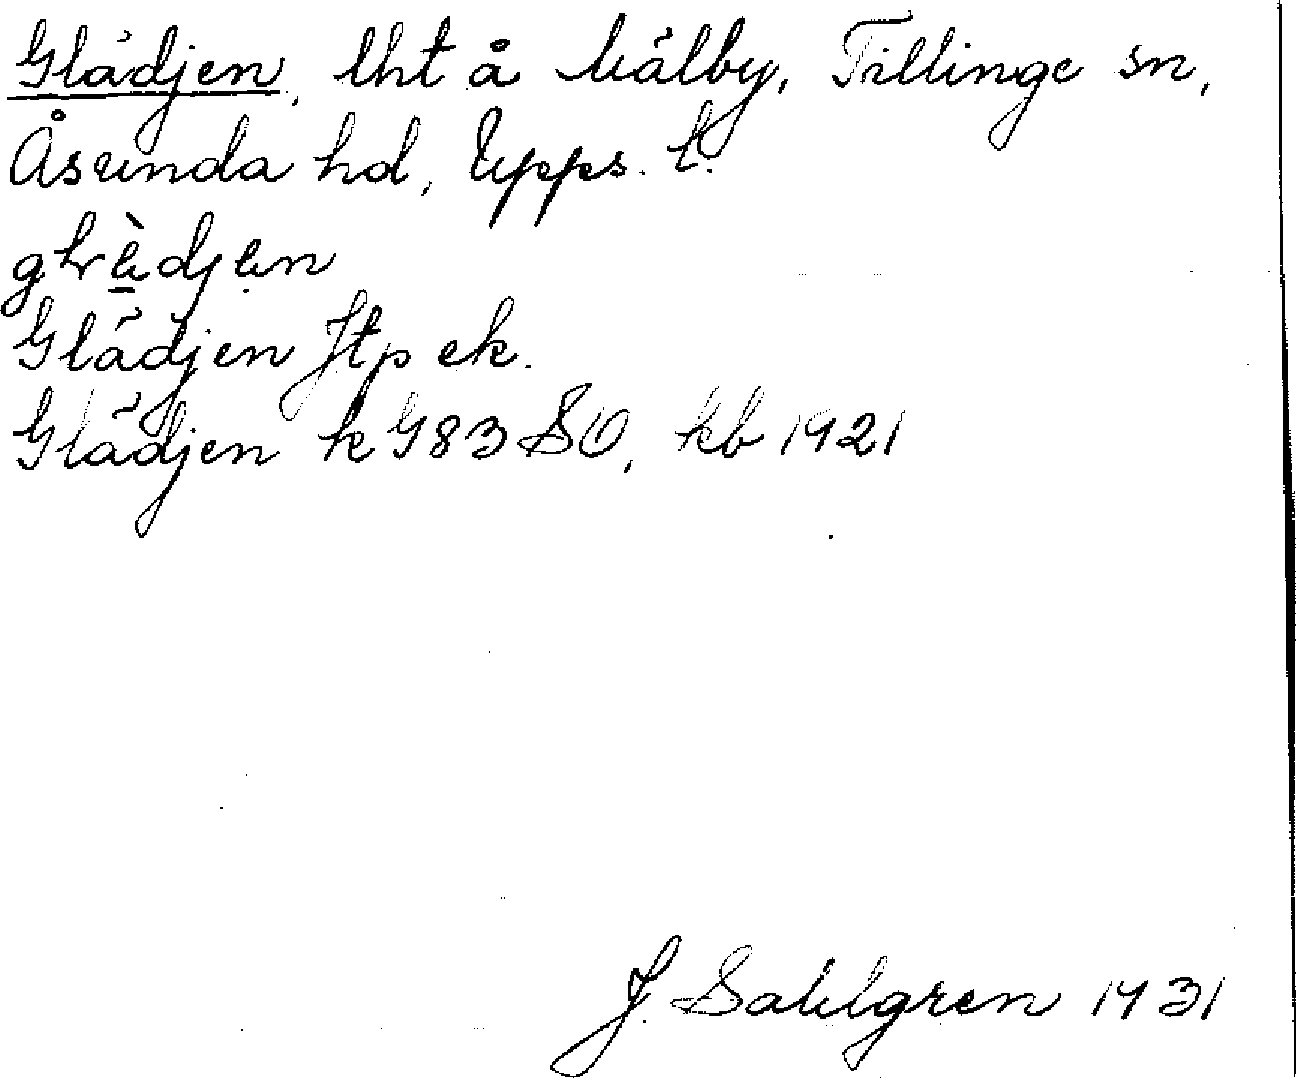 Glädjen, lht å Kälby, Tillinge sn,
Åsunda hd, Upps. l.
Glädjen Jtp ek.
Glädjen k G83 SO, kb 1921
J. Sahlgren 1931